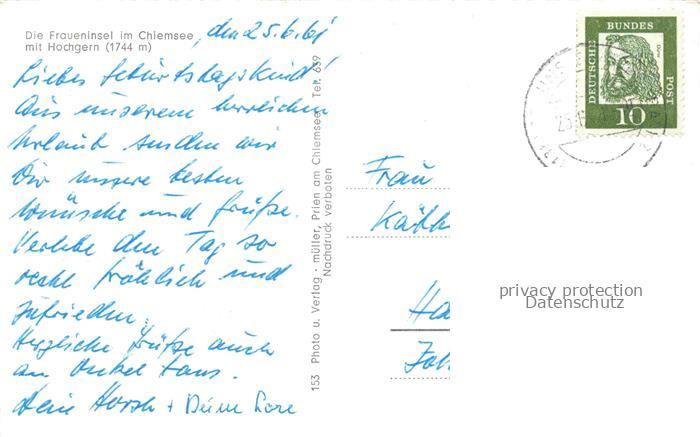 Die Fraueninsel im Chiemsee
mit Hochgern (1744 m)
, den 25.6.61
Liebes Geburtstagskind!
Aus unserem herrlichen
Urlaub senden wir
Dir unsere besten
Wünsche und Grüße.
Verlebe den Tag so
recht fröhlich und
zufrieden.
Herzliche Grüße auch
an Onkel Hans.
Dein Horst + Deine Lore
153 Photo u. Verlag · müller, Prien am Chiemsee Tel. 639
Nachdruck verboten
DEUTSCHE
BUNDES
POST
Dürer
10
Frau
Käth
Ha
Joh
privacy protection
Datenschutz